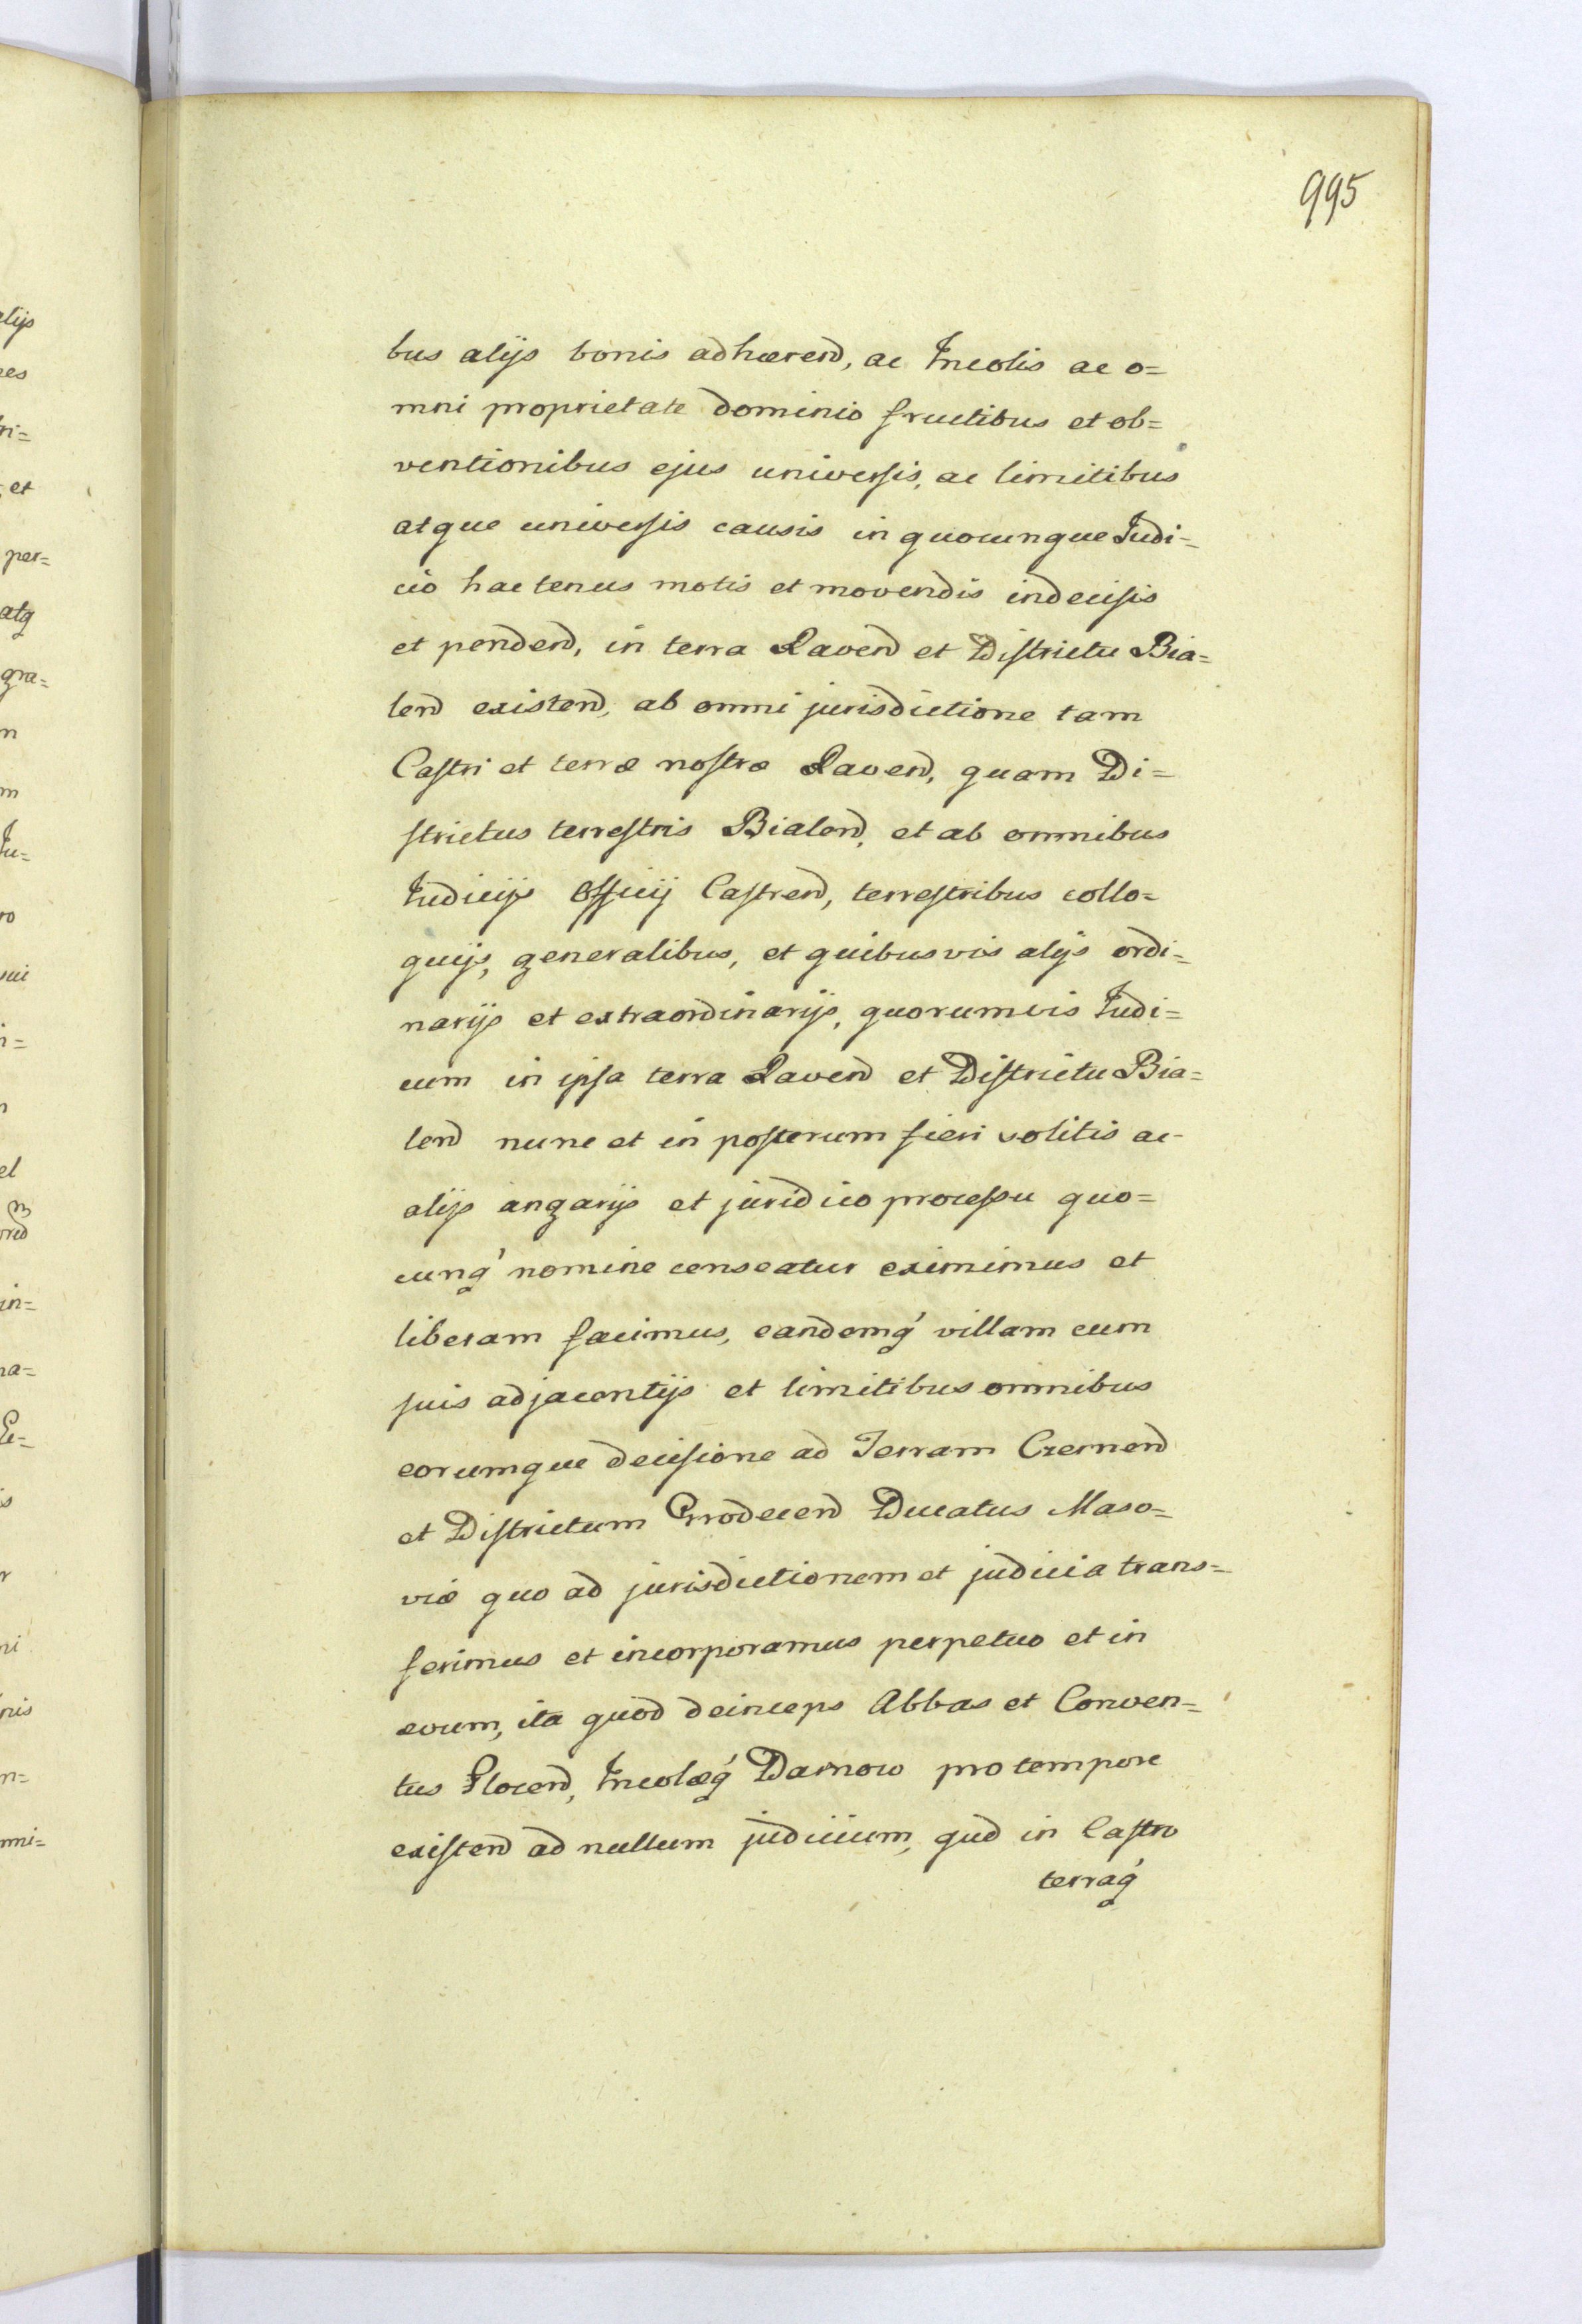 995
bus alijs bonis adhærend, ac Incolis ac o=
mni proprietate dominio fructibus et ob=
ventionibus ejus universis, ac limitibus
atque universis causis in quocunque Iudi=
cio hactenus motis et movendis indecisis
et pendend, in terra Ravend et Districtu Bia=
lend existend, ab omni jurisdictione tam
Castri et terræ nostræ Ravend, quam Di=
strictus terrestris Bialend, et ab omnibus
Iudicijs Officij Castrend, terrestribus collo=
quijs, generalibus, et quibusvis alijs ordi=
narijs et extraordinarijs, quorumvis Iudi=
cum in ipsa terra Ravend et Districtu Bia=
lend nunc et in posterum fieri solitis ac
alijs angarijs et juridico processu quo=
cunq' nomine censeatur eximimus et
liberam facimus, eandemq' villam cum
suis adjacentijs et limitibus omnibus
eorumque decisione ad Terram Czernend
et Districtum Grodecend Ducatus Maso=
viæ quo ad jurisdictionem et judicia trans=
ferimus et incorporamus perpetuo et in
ævum, ita quod deinceps Abbas et Conven=
tus Plocend, Incolæq' Darnow pro tempore
existend ad nullum judicium, qud in Castro
terraq'
elijs
et
per=
atq
gra=
n
m
Iu=
ro
el
in=
na=
nis
n=
mni=